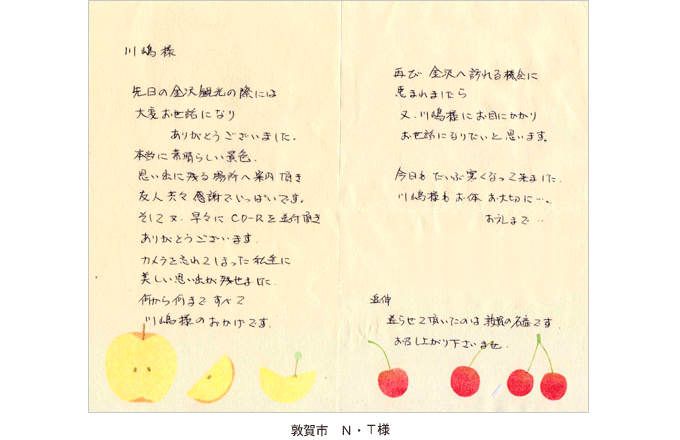 川嶋様
先日の金沢観光の際には
大変お世話になり
ありがとうございました。
本当に素晴らしい景色、
思い出に残る場所へ案内頂き
友人共々感謝でいっぱいです。
そして又、早々にCD-Rを送付頂き
ありがとうございます。
カメラを忘れてしまった私達に
美しい思い出が残せました。
何から何まですべて
川嶋様のおかげです。
再び金沢へ訪れる機会に
恵まれましたら
又、川嶋様にお目にかかり
お世話になりたいと思います。
今日もだいぶ寒くなって来ました。
川嶋様もお体お大切に…。
お礼まで…
追伸
送らせて頂いたのは敦賀の名産です。
お召し上がり下さいませ。
敦賀市　N・T様